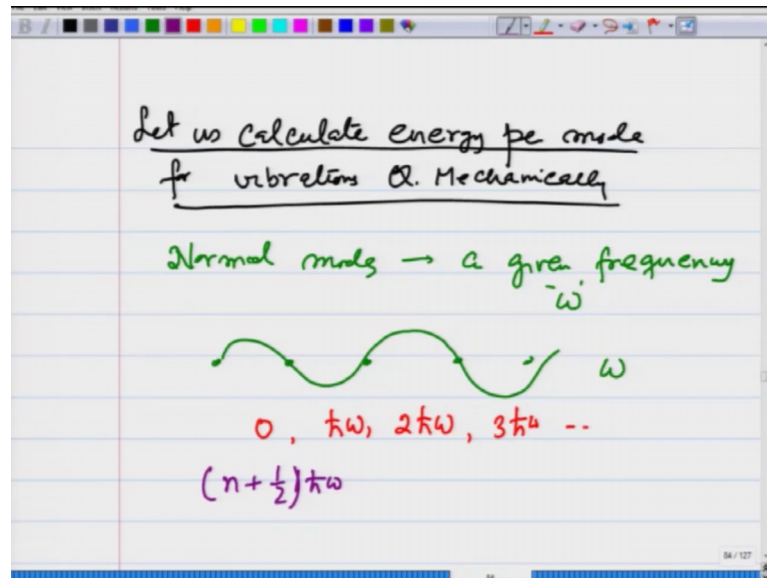 Let us calculate energy pe mode
for vibrations Q. Mechanically
Normal modes → a given frequency
'ω'
ω
0, ħω, 2ħω, 3ħω --
(n + 1/2)ħω
84 / 127